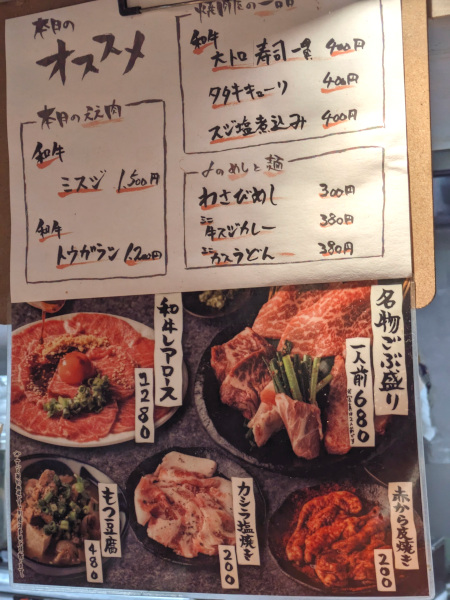 本日の
オススメ
本日のええ肉
和牛
ミスジ 1.500円
和牛
トウガラシ 1.200円
焼肉屋の一品
和牛
大トロ寿司一貫 400円
タタキキューリ 400円
スジ塩煮込み 400円
〆のめしと麺
わさびめし 300円
ミニ
牛スジカレー 380円
ミニ
カスうどん 380円
和牛レアロース
1280
名物ごぶ盛り
一人前680
もつ豆腐
480
カシラ塩焼き
200
赤から皮焼き
200